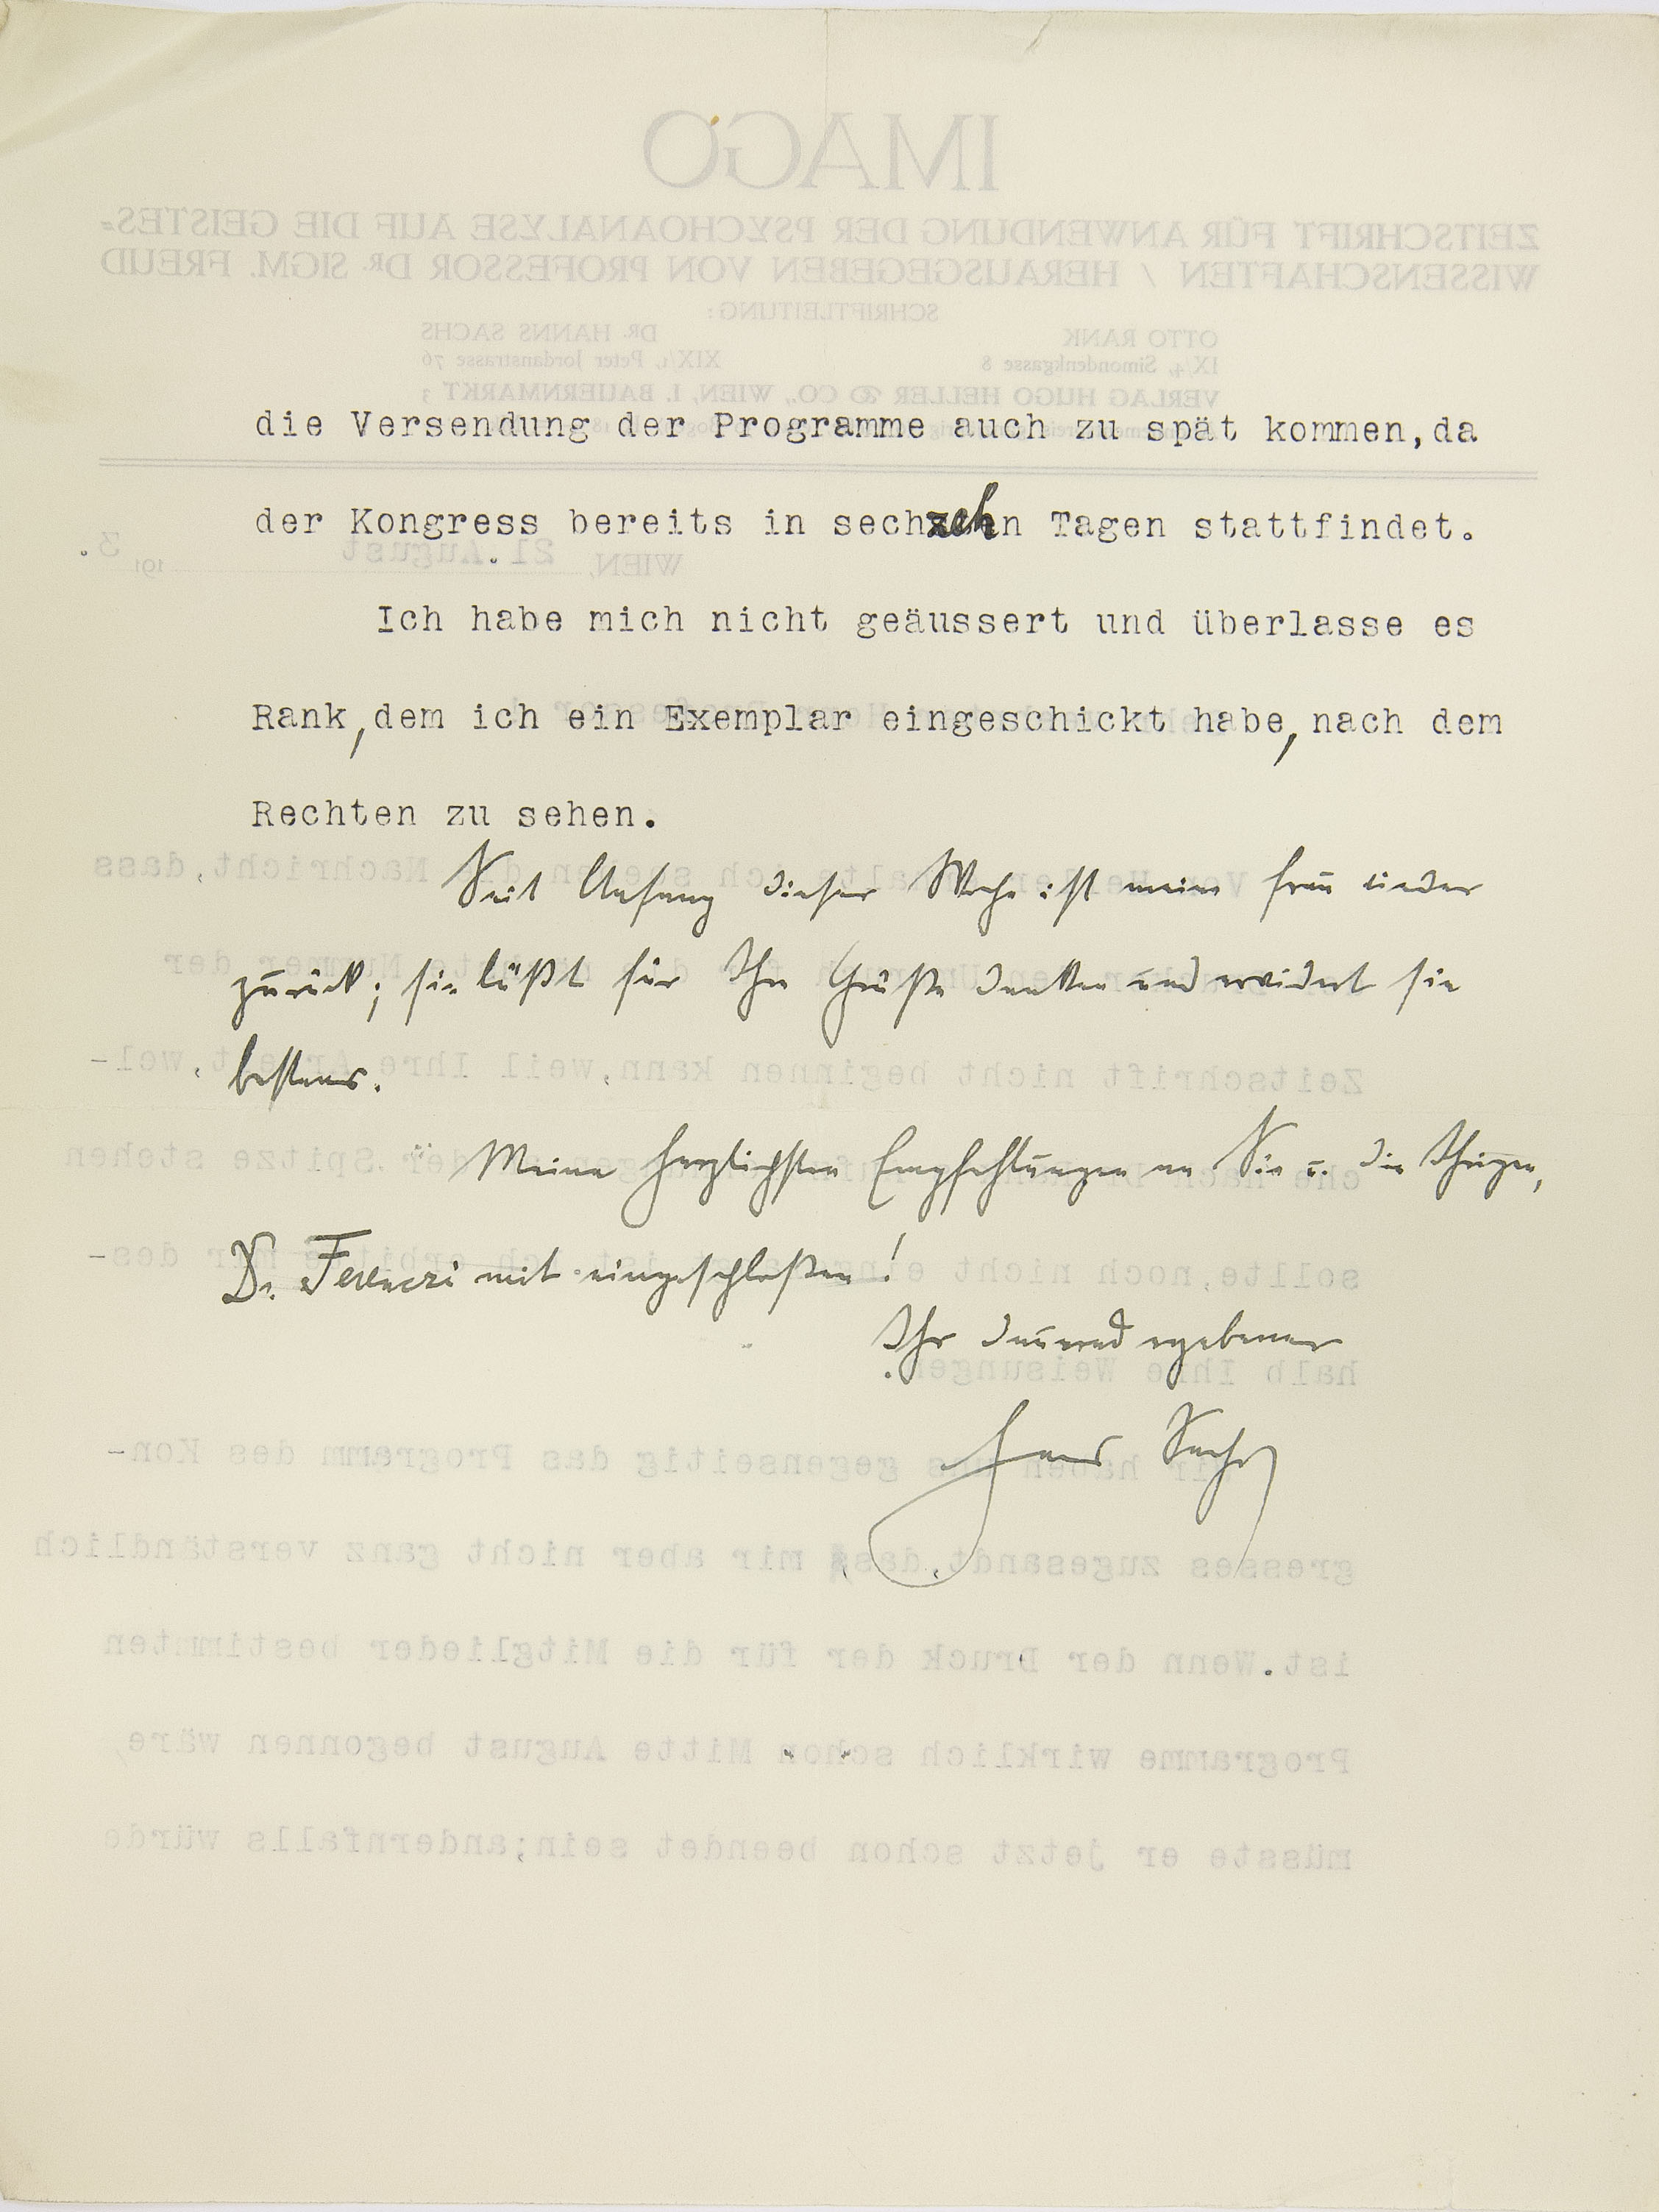 die Versendung der Programme auch zu spät kommen,da
der Kongress bereits in sechzehn Tagen stattfindet.
Ich habe mich nicht geäussert und überlasse es
Rank,dem ich ein Exemplar eingeschickt habe,nach dem
Rechten zu sehen.
Seit Anfang dieser Woche ist meine Frau wieder
zurück; sie läßt für Ihre Grüße danken und erwidert sie
bestens.
Meine herzlichsten Empfehlungen an Sie u. die Ihrigen,
Dr. Ferenczi mit eingeschloßen!
Ihr dauernd ergebener
Hanns Sachs